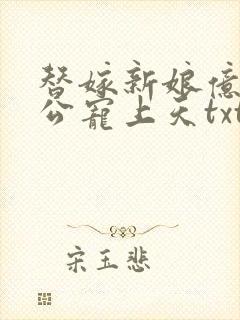 替嫁新娘亿
公宠上天txt
宋玉悲